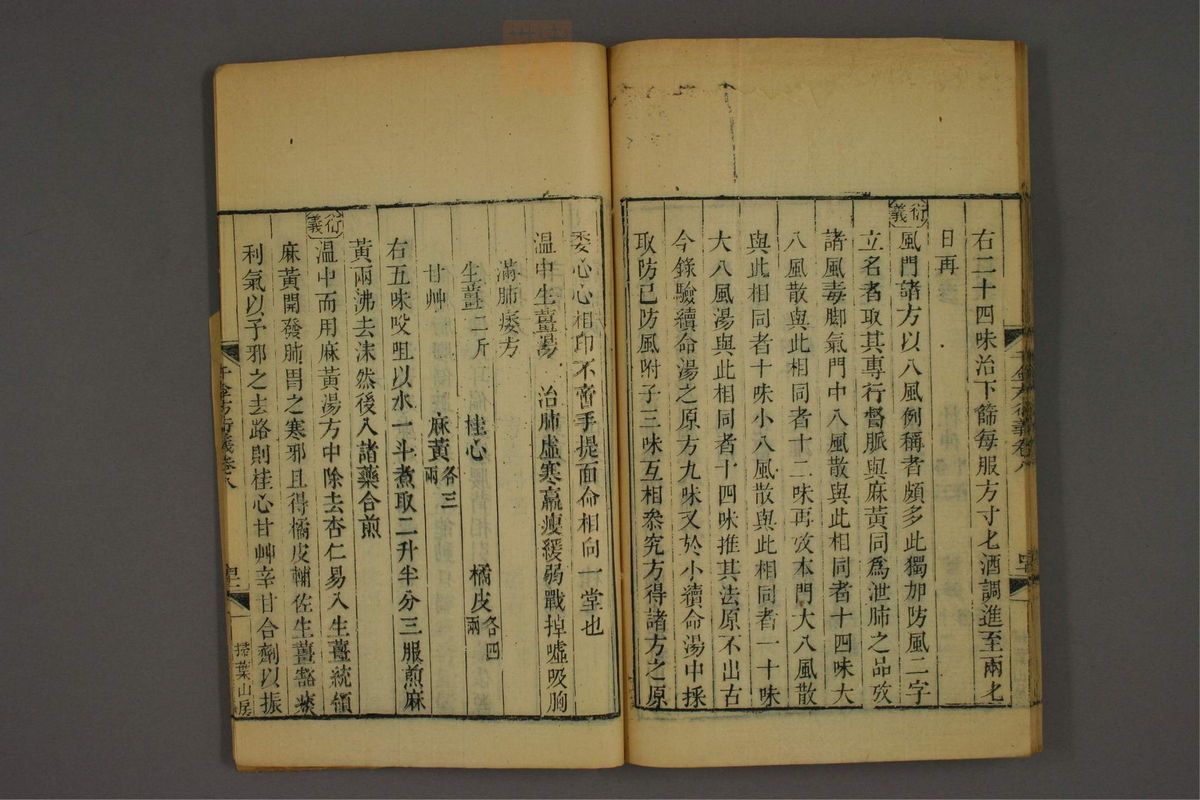 右二十四味治下篩每服方寸匕酒調進至兩匕
日再
衍義
風門諸方以八風例稱者頗多此獨加防風二字
立名者取其專行督脈與麻黃同爲泄肺之品攷
諸風毒脚氣門中八風散與此相同者十四味大
八風散與此相同者十二味再攷本門大八風散
與此相同者十味小八風散與此相同者一十味
大八風湯與此相同者十四味推其法原不出古
今錄驗續命湯之原方九味又於小續命湯中採
取防己防風附子三味互相叅究方得諸方之原
委心心相印不啻手提面命相向一堂也
溫中生薑湯 治肺虛寒羸瘦緩弱戰掉噓吸胸
滿肺痿方
生薑二斤 桂心 橘皮各四兩
甘艸 麻黃各三兩
右五味㕮咀以水一斗煮取二升半分三服煎麻
黃兩沸去沫然後入諸藥合煎
衍義
溫中而用麻黃湯方中除去杏仁易入生薑統領
麻黃開發肺胃之寒邪且得橘皮輔佐生薑豁痰
利氣以予邪之去路則桂心甘艸辛甘合劑以振
千金方衍義卷八
掃葉山房